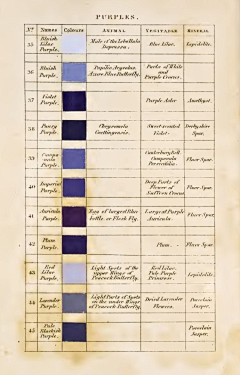 PURPLES.
Nº Names Colours ANIMAL VEGETABLE MINERAL
35 Bluish Lilac Purple. Male of the Lebellula Depressa. Blue Lilac. Lepidolite.
36 Bluish Purple. Papilio Argeolus. Azure Blue Butterfly. Parts of White and Purple Crocus.
37 Violet Purple. Purple Aster Amethyst.
38 Pansy Purple. Chrysomela Goettingensis. Sweet-scented Violet. Derbyshire Spar.
39 Campanula Purple. Canterbury Bell. Campanula Persicifolia. Fluor Spar.
40 Imperial Purple. Deep Parts of Flower of Saffron Crocus. Fluor Spar.
41 Auricula Purple. Egg of largest Blue bottle, or Flesh Fly. Largest Purple Auricula. Fluor Spar.
42 Plum Purple. Plum. Fluor Spar.
43 Red Lilac Purple. Light Spots of the upper Wings of Peacock Butterfly. Red Lilac. Pale Purple Primrose. Lepidolite.
44 Lavender Purple. Light Parts of Spots on the under Wings of Peacock Butterfly. Dried Lavender Flowers. Porcelain Jasper.
45 Pale Blackish Purple. Porcelain Jasper.